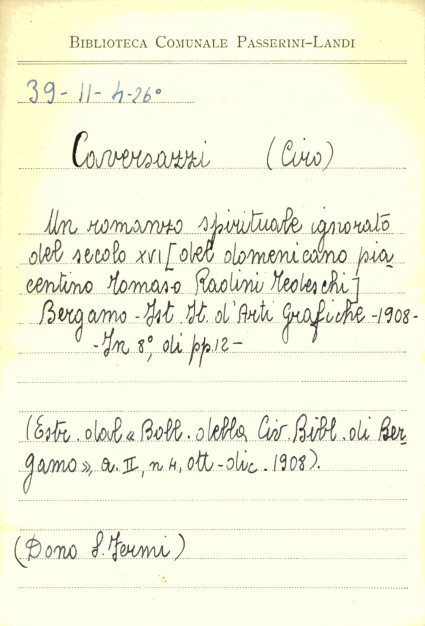 BIBLIOTECA COMUNALE PASSERINI-LANDI
39-11-4-26°
Caversazzi (Ciro)
Un romanzo spirituale ignorato
del secolo XVI [del domenicano pia-
centino Tomaso Radini Tedeschi]
Bergamo - Ist. It. d'Arti Grafiche - 1908 -
- In 8°, di pp. 12 -
(Estr. dal « Boll. della Civ. Bibl. di Ber-
gamo », a. II, n 4, ott - dic. 1908).
(Dono S. Fermi)